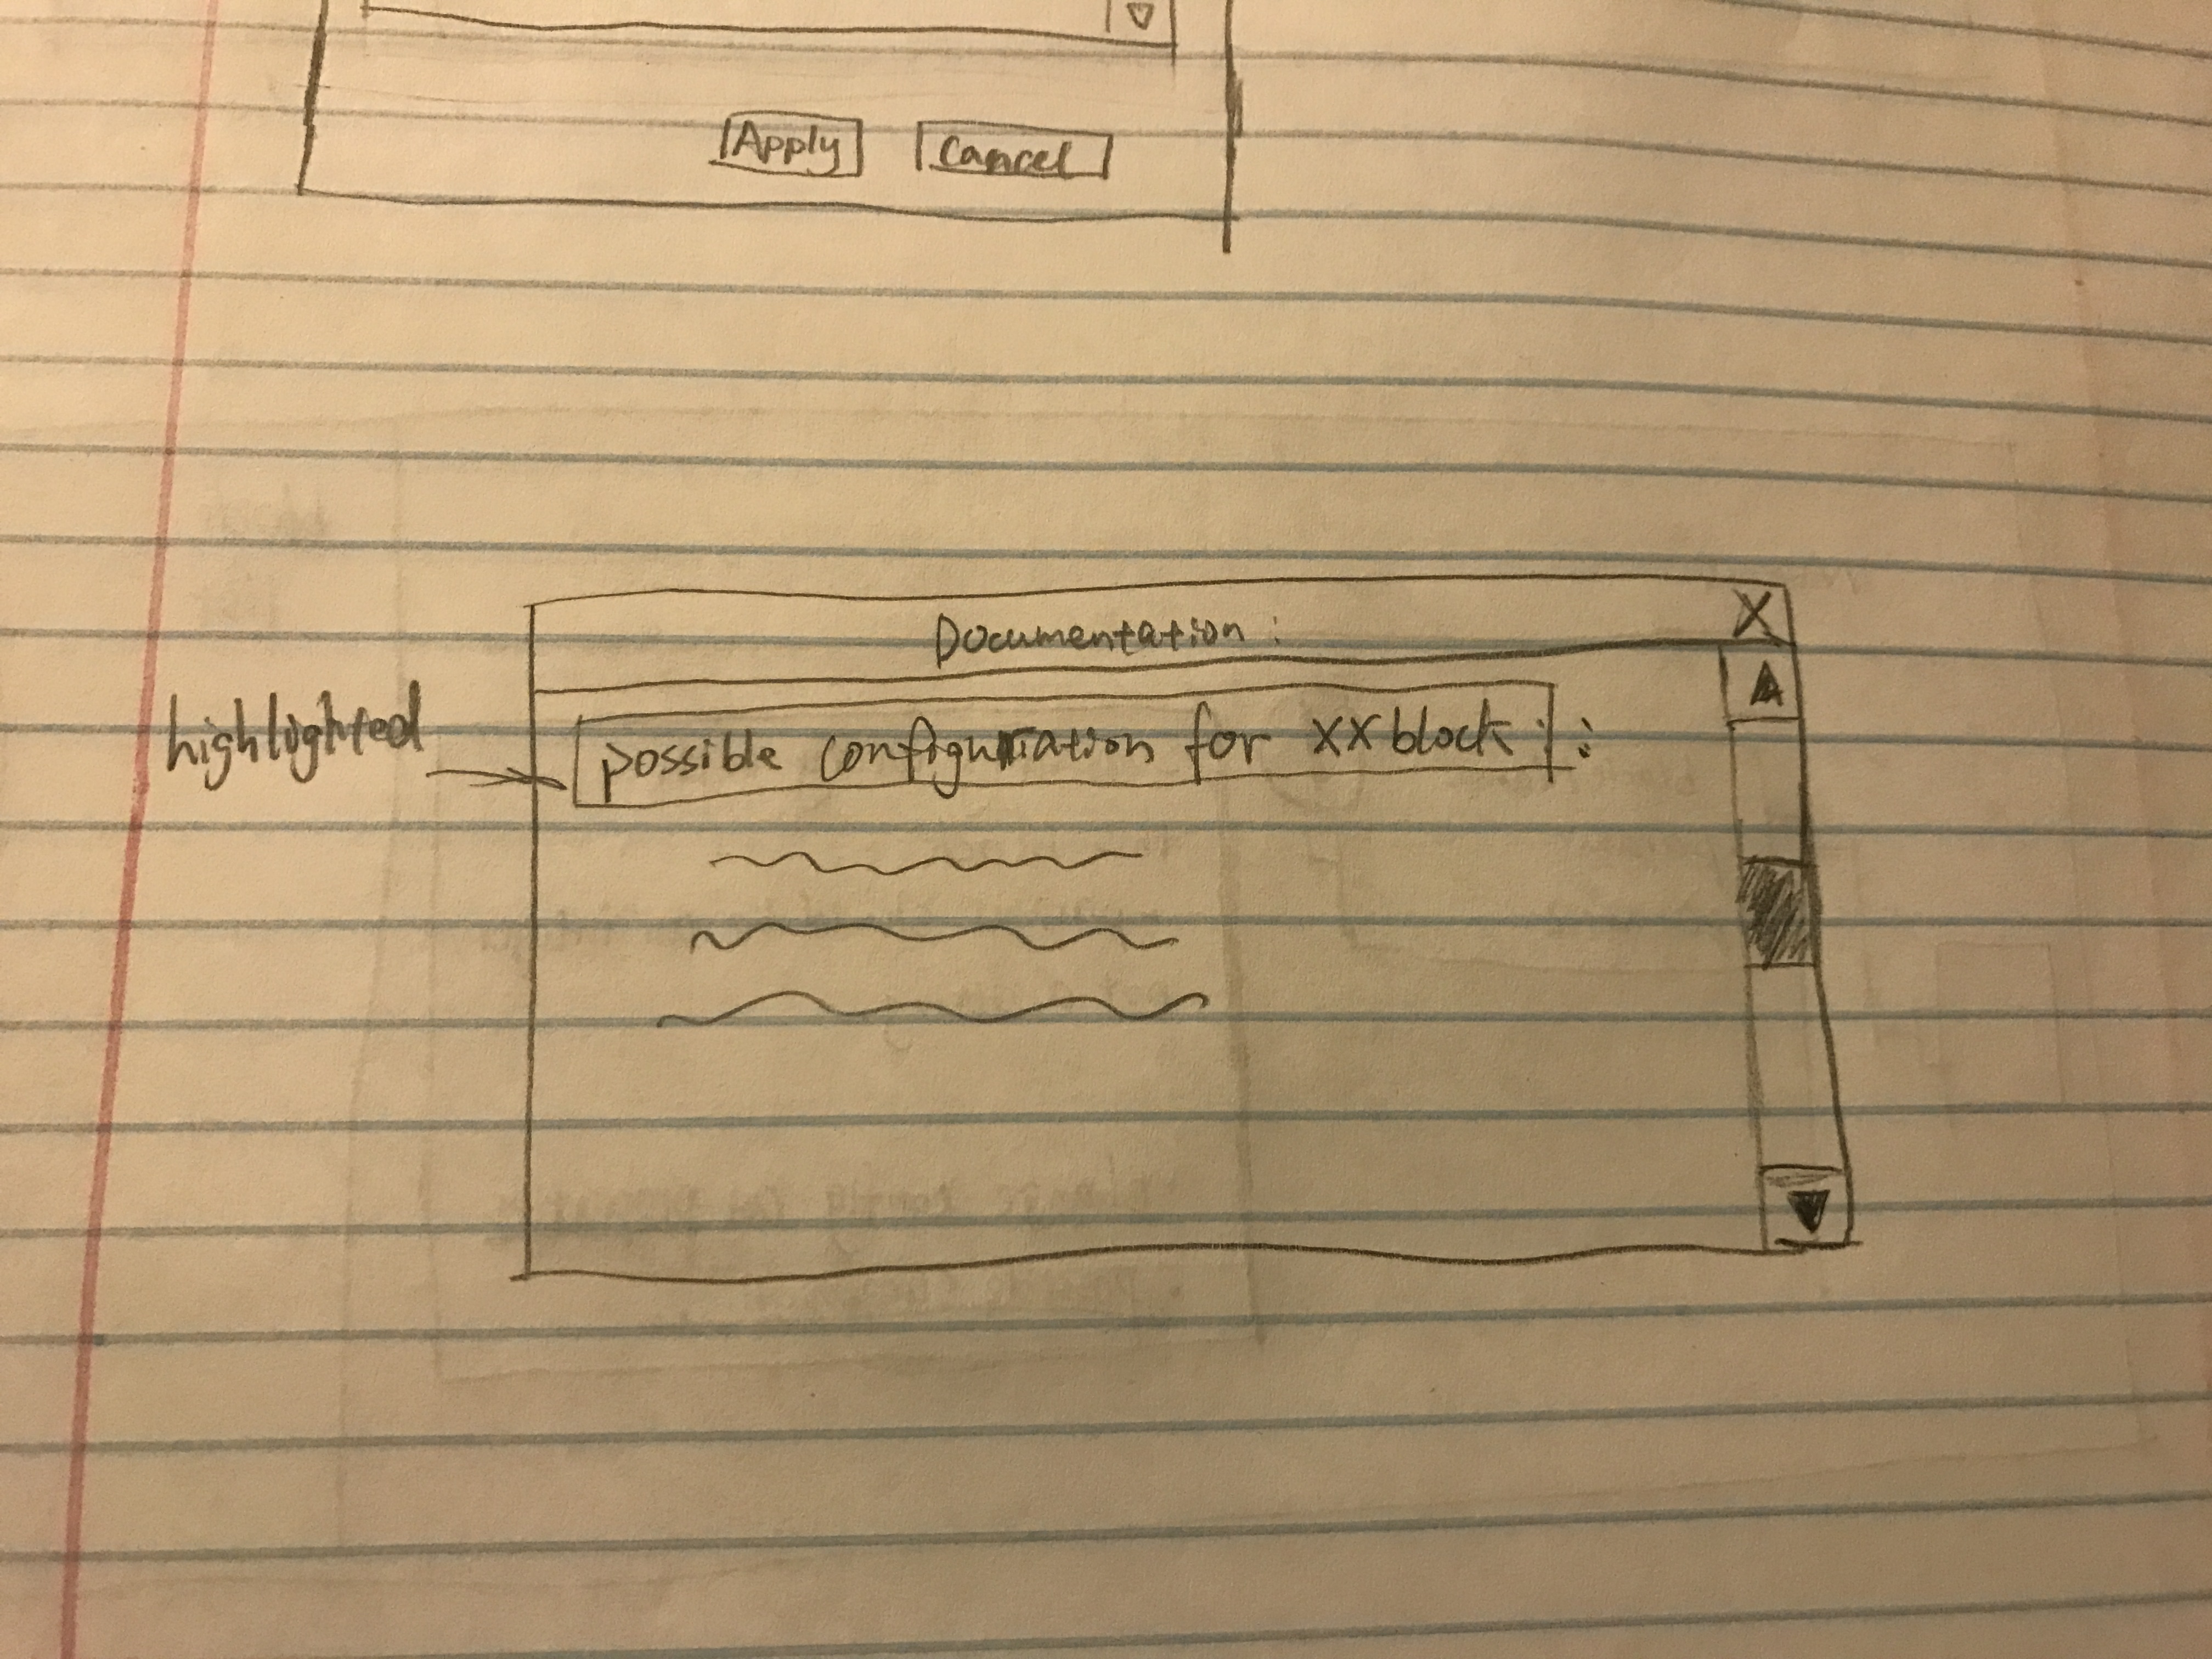 Apply Cancel
Documentation : X
highlighted
possible configuration for XX block : :